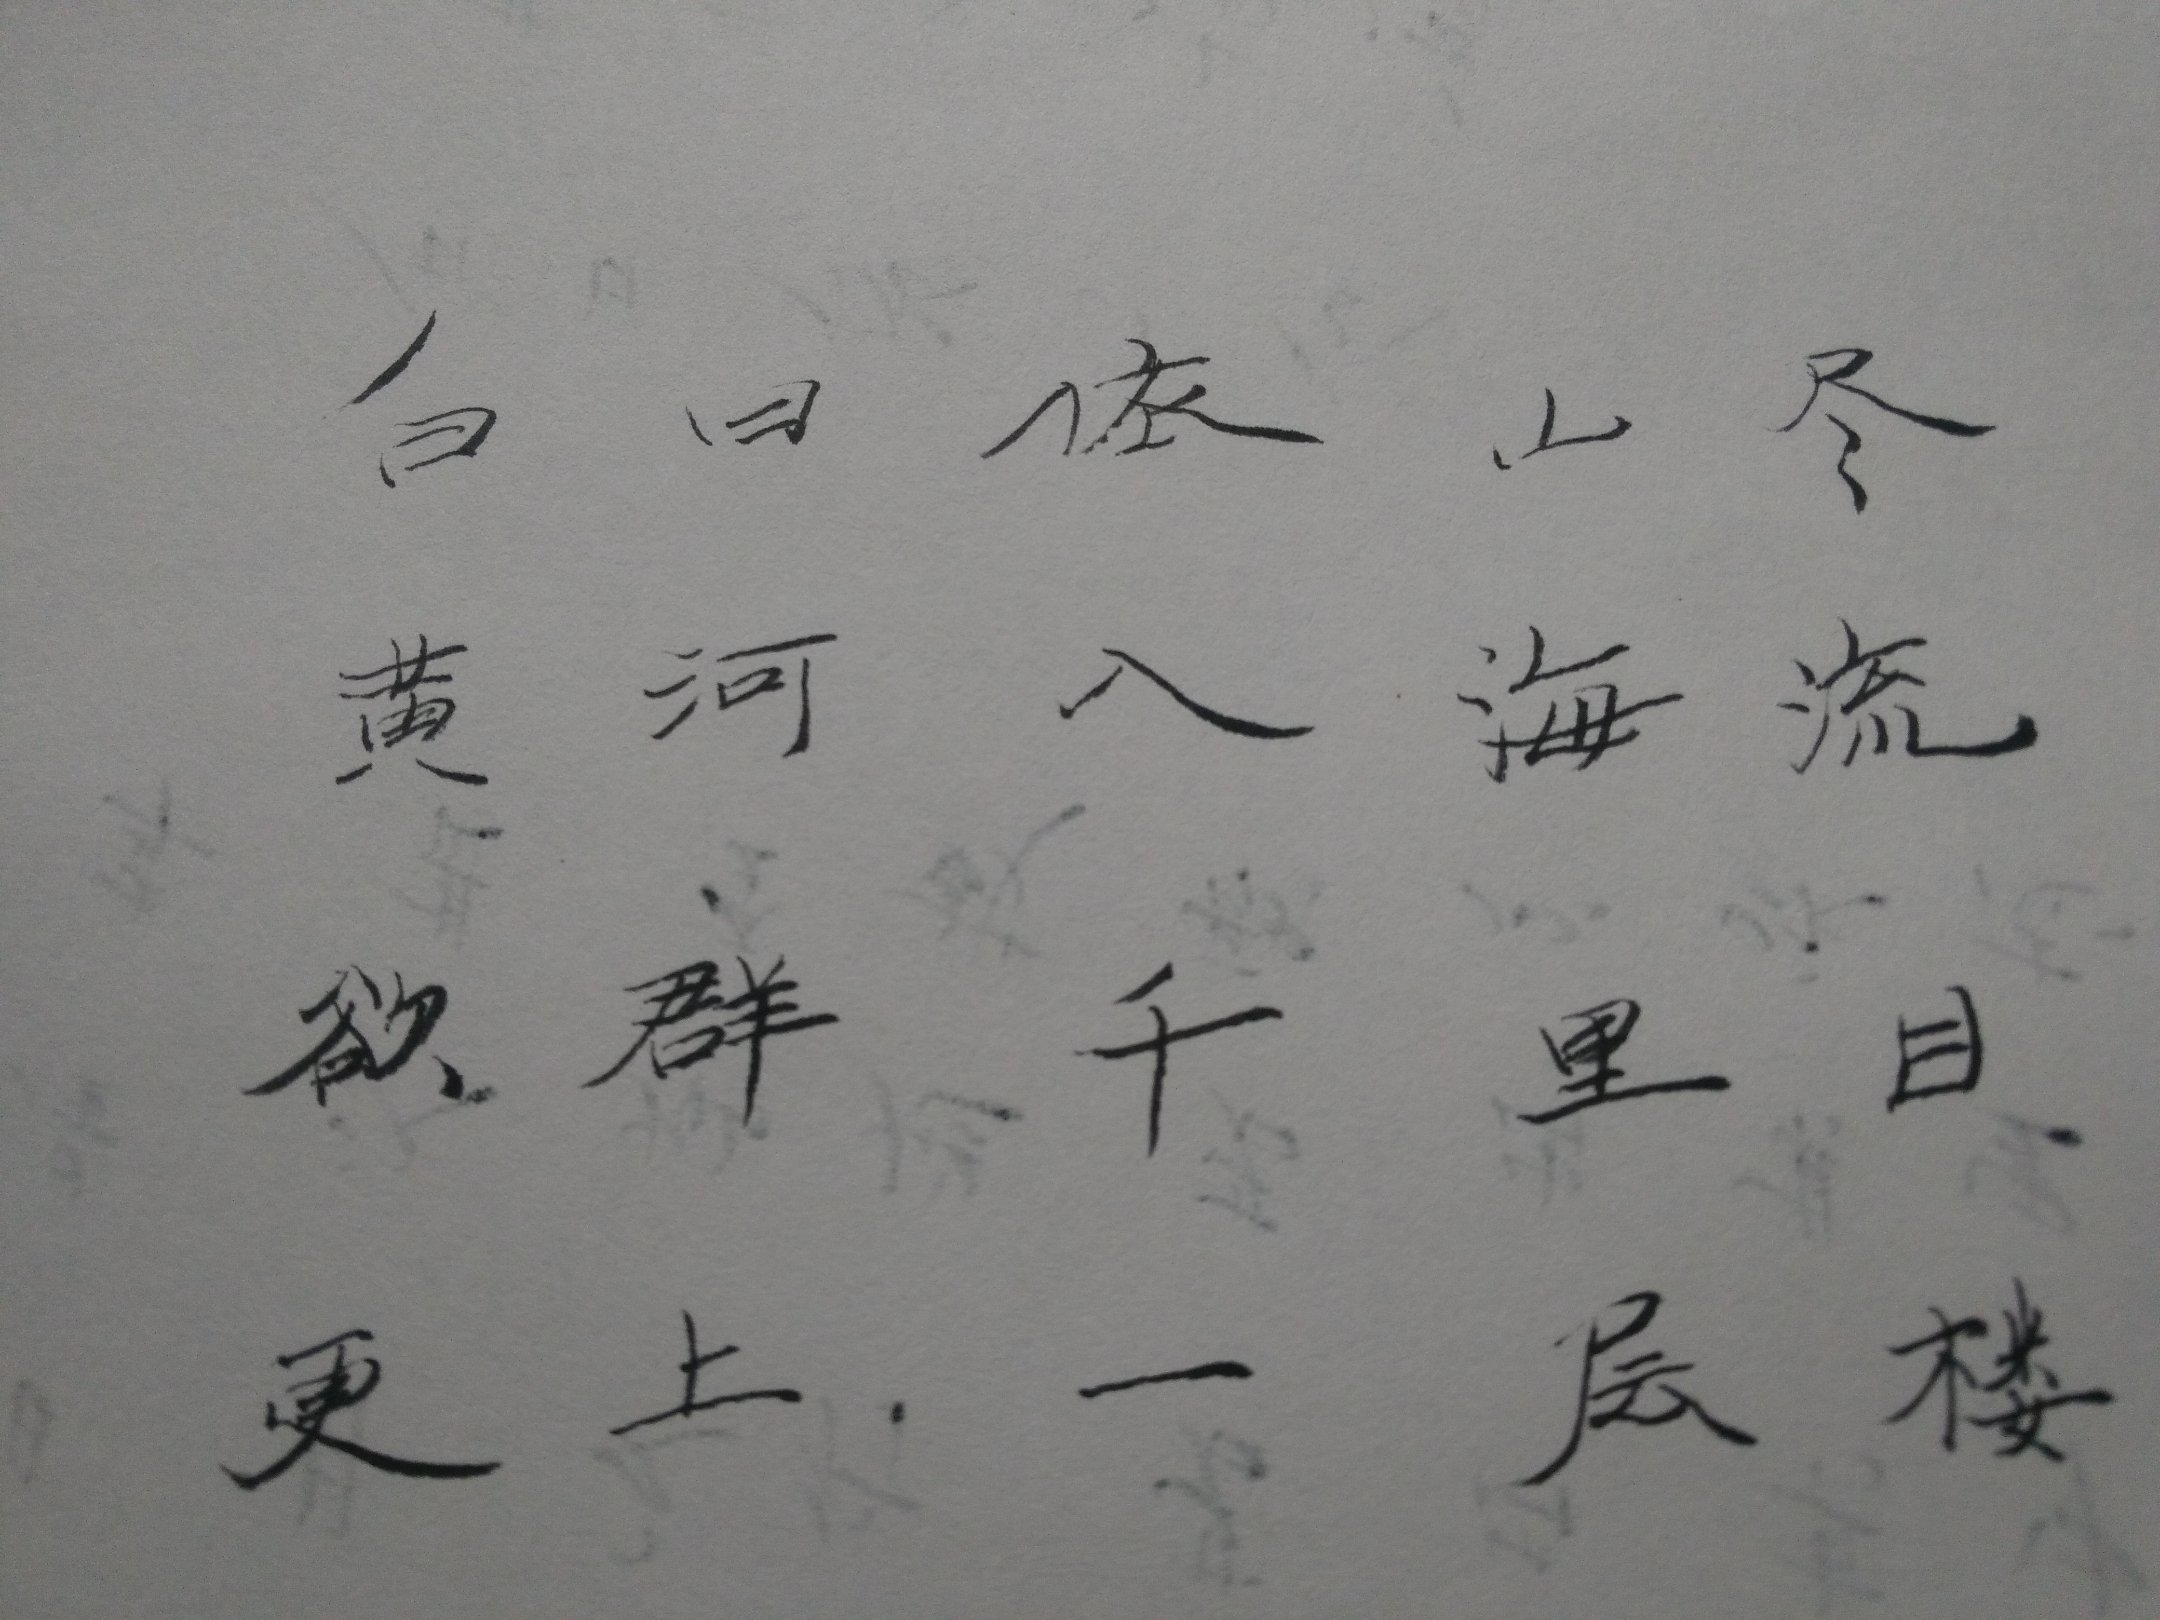 白日依山尽
黄河入海流
欲群千里目
更上一层楼